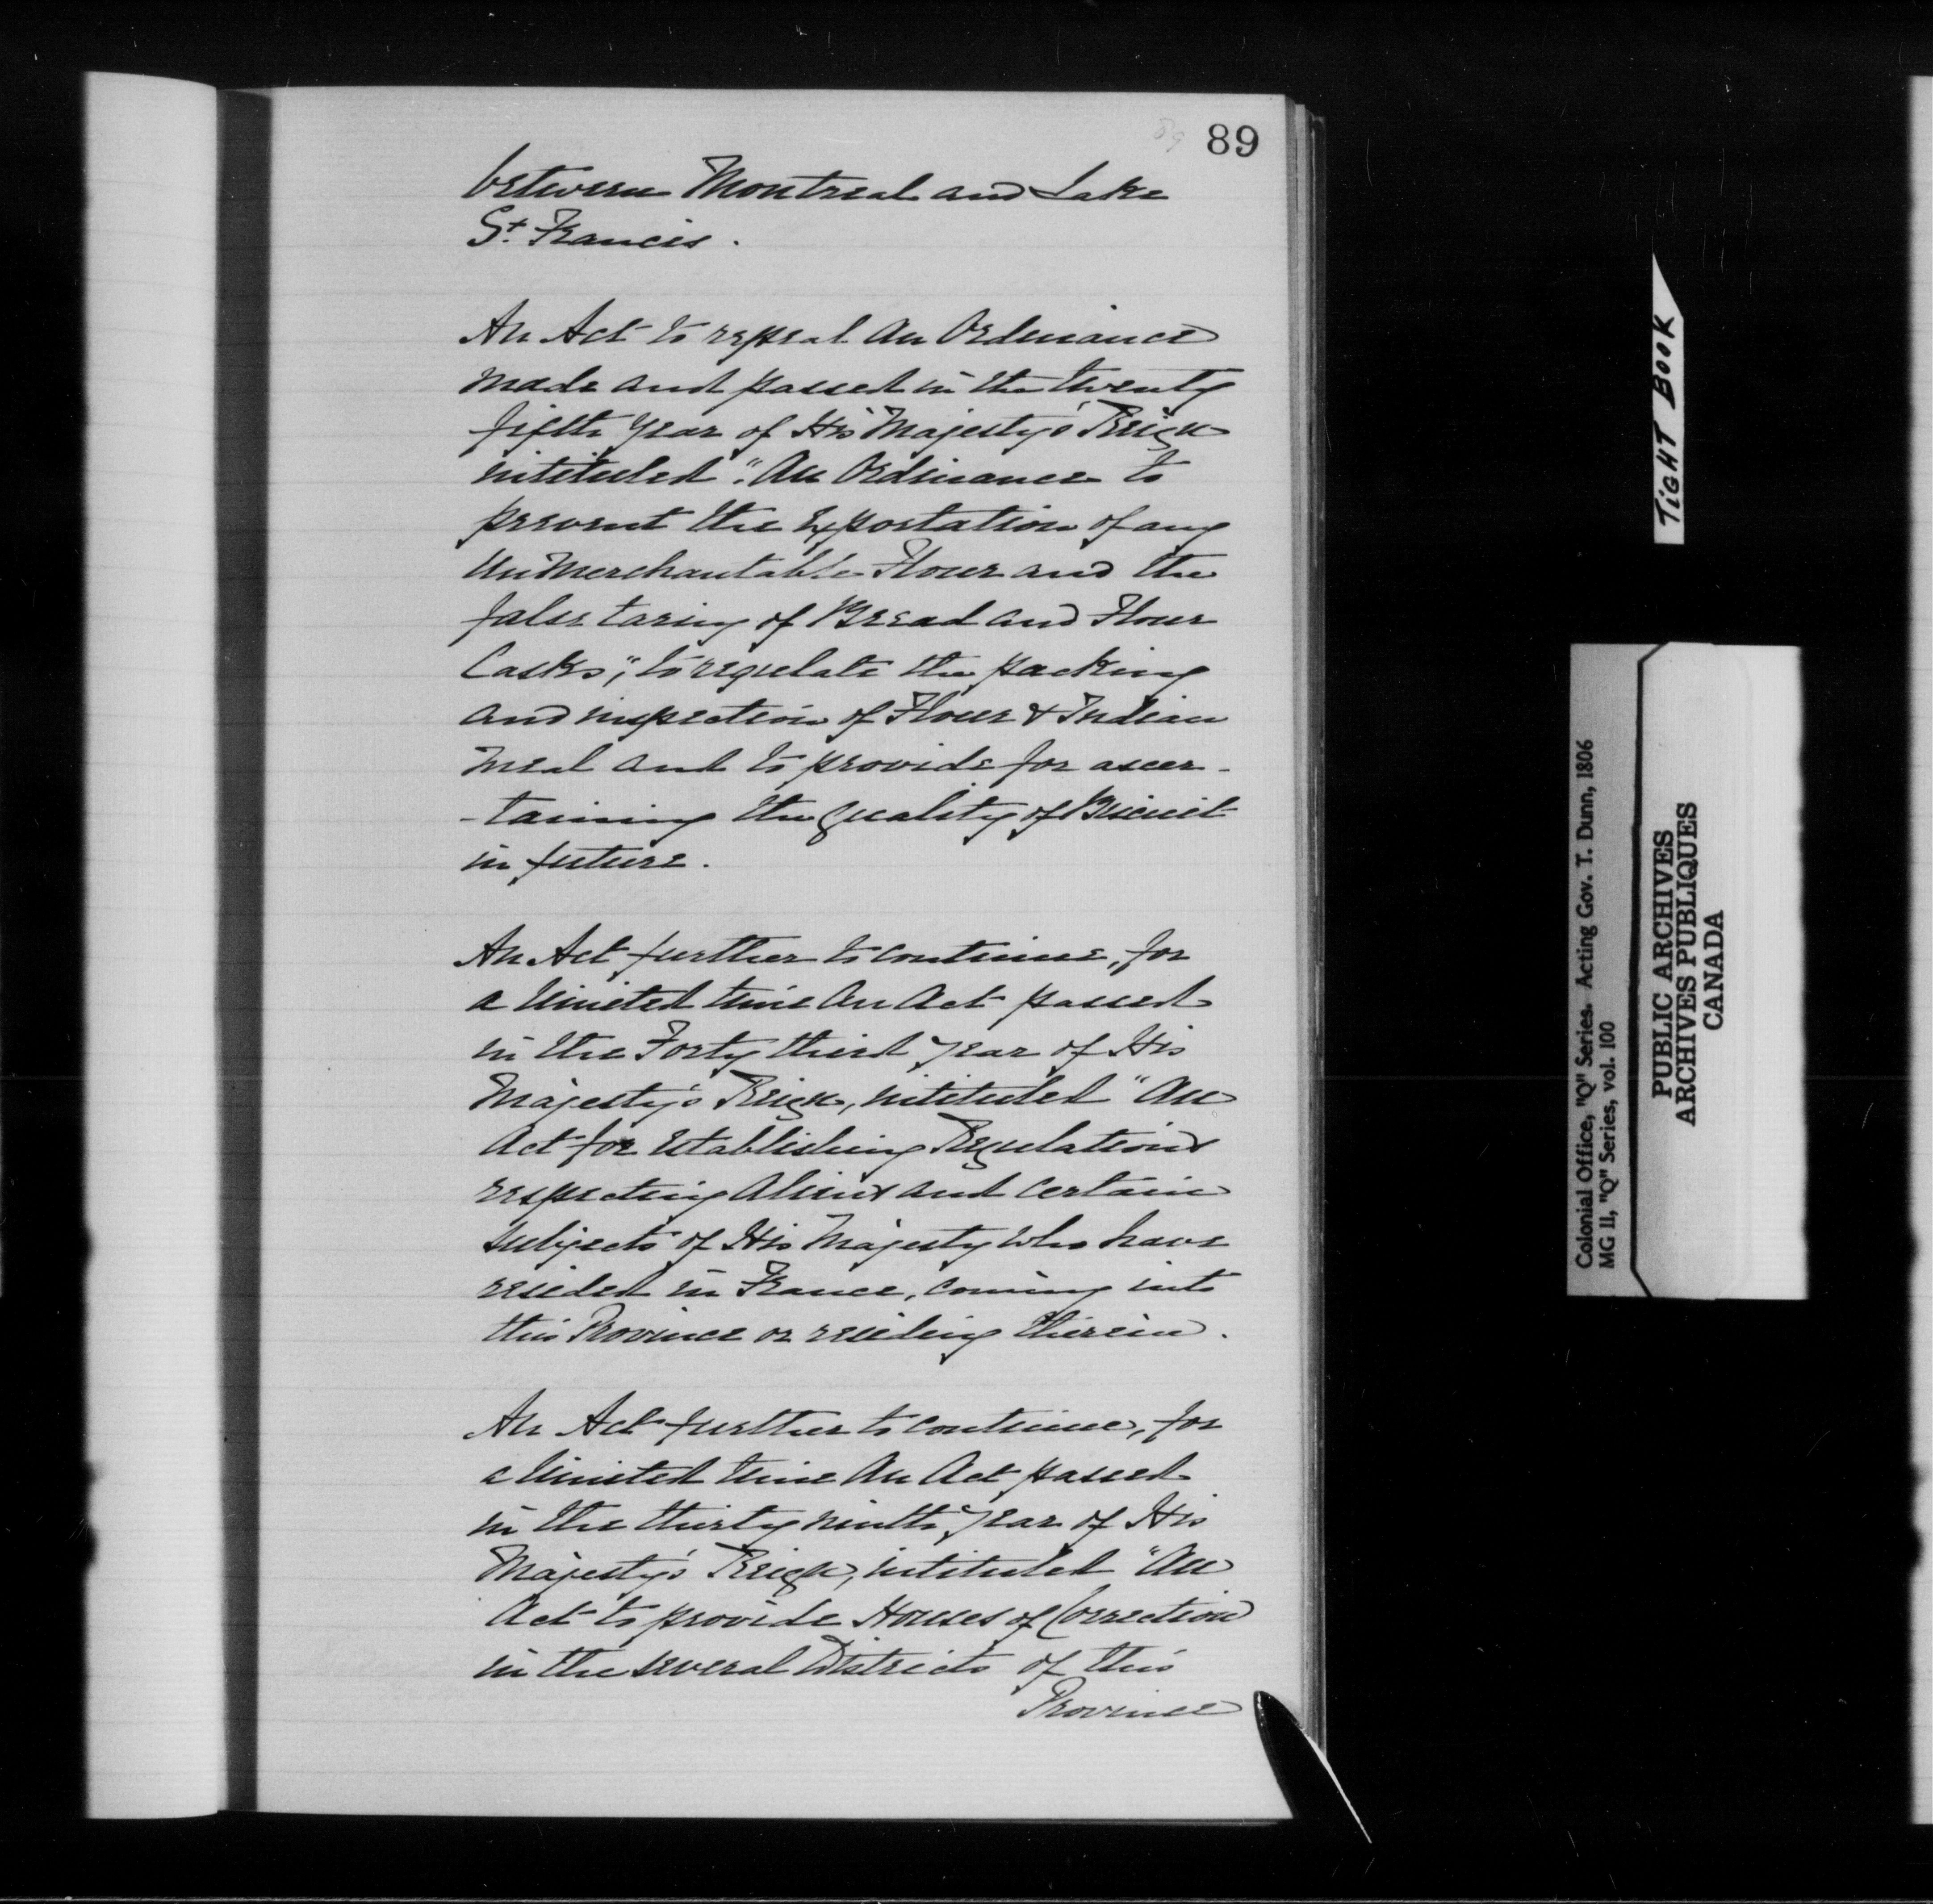 89
89
between Montreal and Lake
St. Francis.
An Act to repeal an Ordinance
made and passed in the twenty
fifth Year of His Majesty's Reign
intituled "An Ordinance to
prevent the Exportation of any
UnMerchantable Flour and the
false taring of Bread and Flour
Casks", to regulate the packing
and inspection of Flour & Indian
Meal and to provide for ascer-
-taining the quality of Biscuit
in future.
An Act further to continue, for
a limited time An Act passed
in the Forty third year of His
Majesty's Reign, intituled "An
Act for Establishing Regulations
respecting Aliens and certain
subjects of His Majesty who have
resided in France, coming into
this Province or residing therein.
An Act further to continue, for
a limited time An Act passed
in the thirty ninth year of His
Majesty's Reign, intituled "An
Act to provide Houses of Correction
in the several Districts of this
Province
TIGHT BOOK
Colonial Office, "Q" Series. Acting Gov. T. Dunn, 1806
MG 11, "Q" Series, vol. 100
PUBLIC ARCHIVES
ARCHIVES PUBLIQUES
CANADA